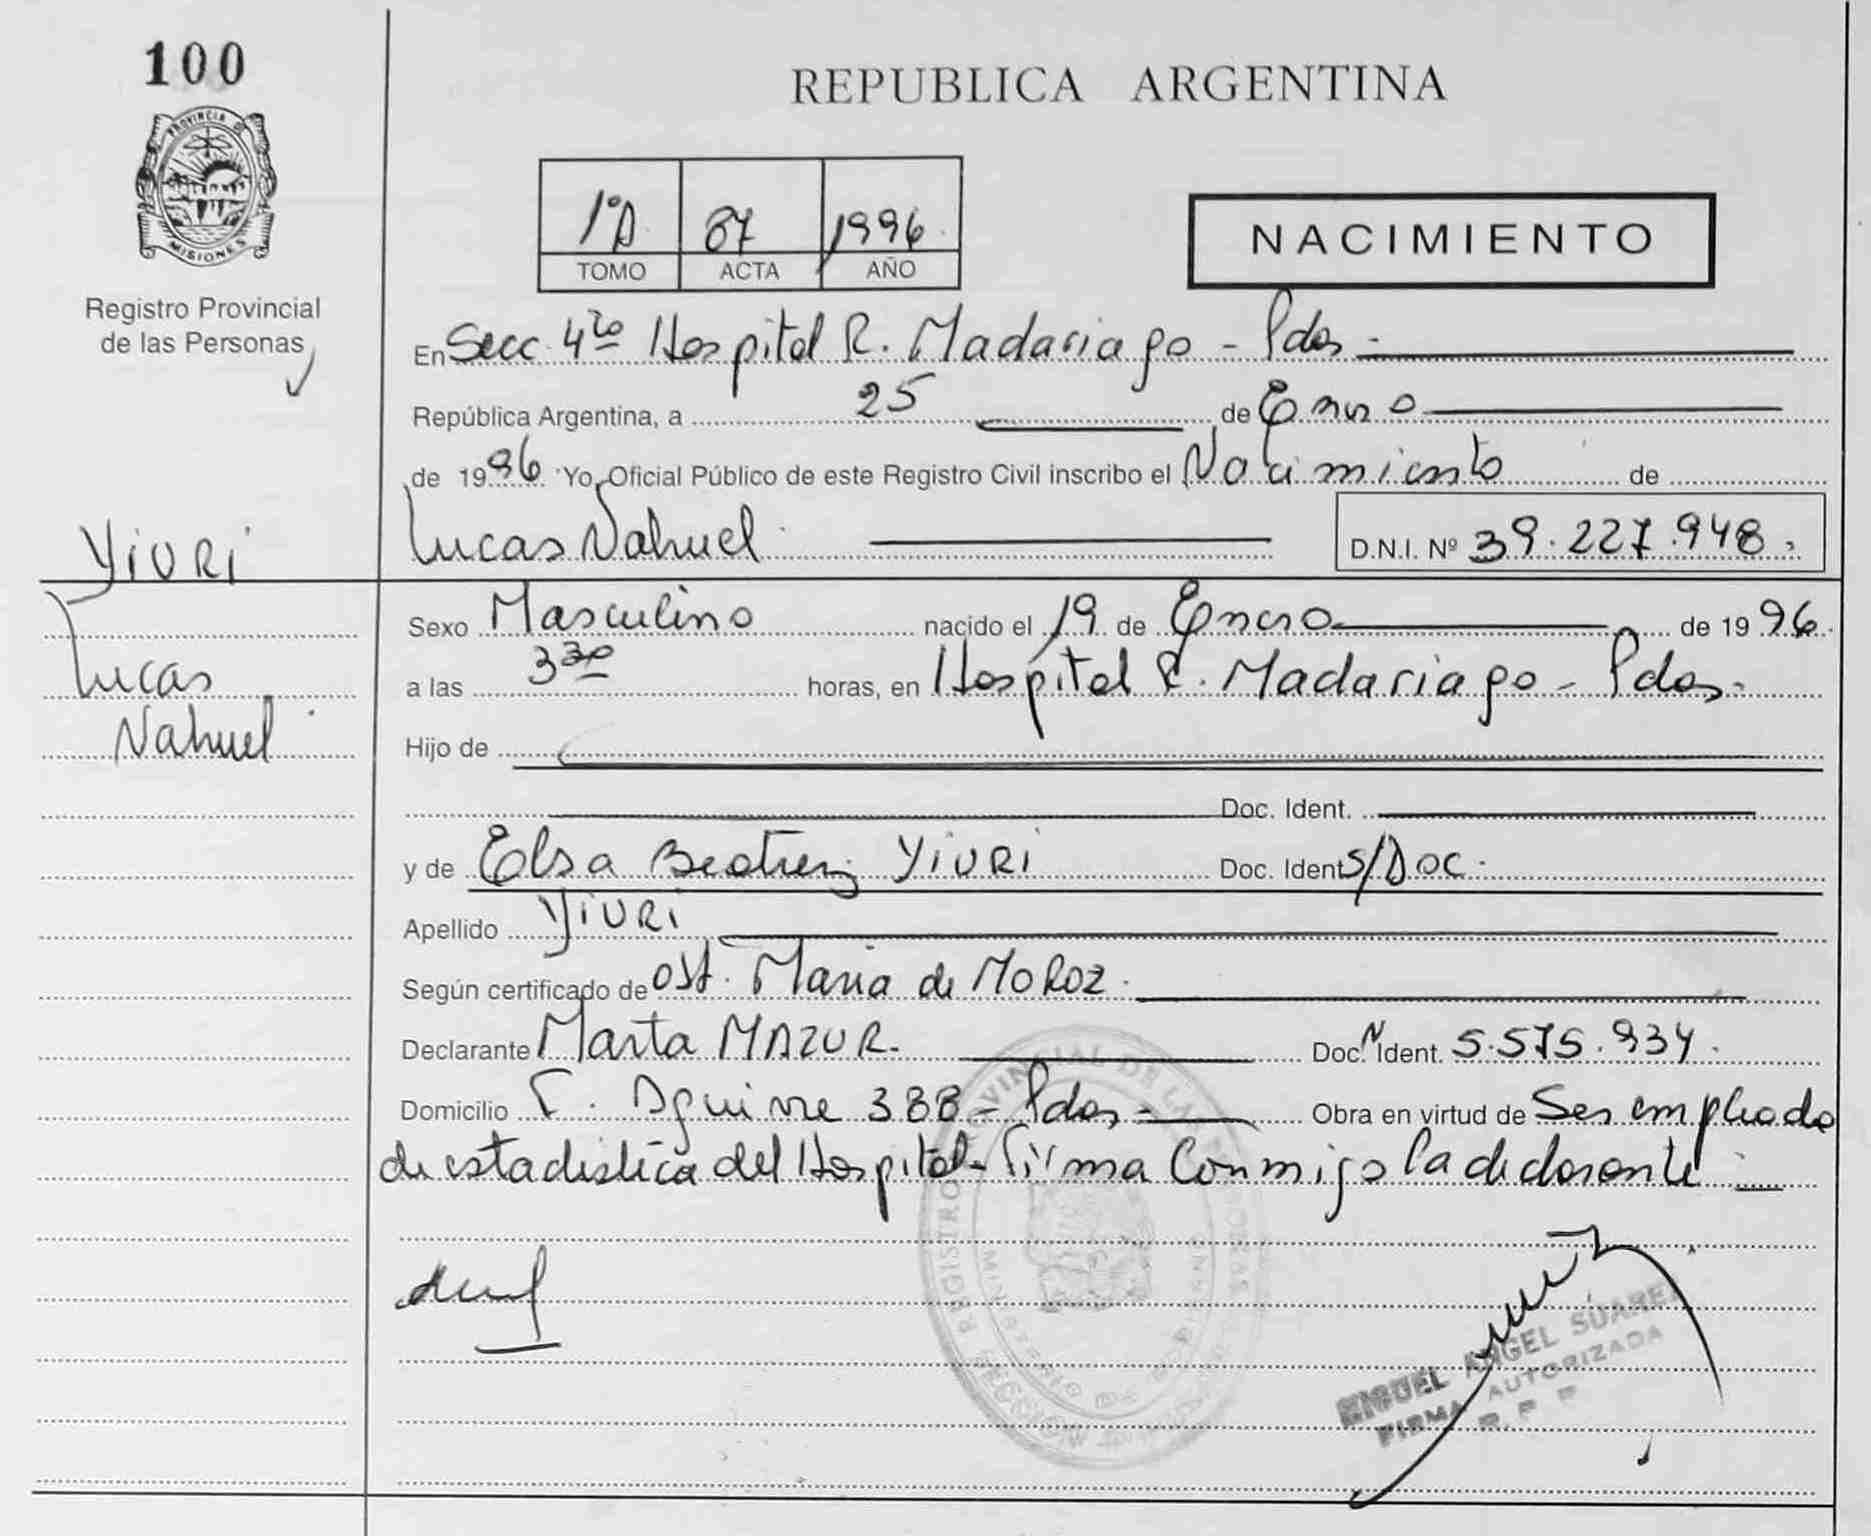 100
REPUBLICA ARGENTINA
PROVINCIA DE
MISIONES
Registro Provincial
de las Personas
1ºA 87 1996
TOMO ACTA AÑO
NACIMIENTO
En Secc. 4ta Hospital R. Madariaga - Pdas -
República Argentina, a 25 de Enero
de 1996 Yo, Oficial Público de este Registro Civil inscribo el Nacimiento de
Lucas Nahuel
D.N.I. Nº 39.227.948.
YIURI
Lucas
Nahuel
Sexo Masculino nacido el 19 de Enero de 1996.
a las 3 30 horas, en Hospital R. Madariaga - Pdas.
Hijo de
Doc. Ident.
y de Elsa Beatriz YIURI Doc. Ident S/Doc.
Apellido YIURI
Según certificado de Ost. Maria de MOROZ.
Declarante Marta MAZUR. Doc. Ident. 5.575.934.
Domicilio F. Aguirre 388 - Pdas - Obra en virtud de Ser empleada
de estadistica del Hospital - Firma Conmigo la declarante
REGISTRO PROVINCIAL DE LAS PERSONAS
MIGUEL ANGEL SUAREZ
FIRMA AUTORIZADA
R. P. P